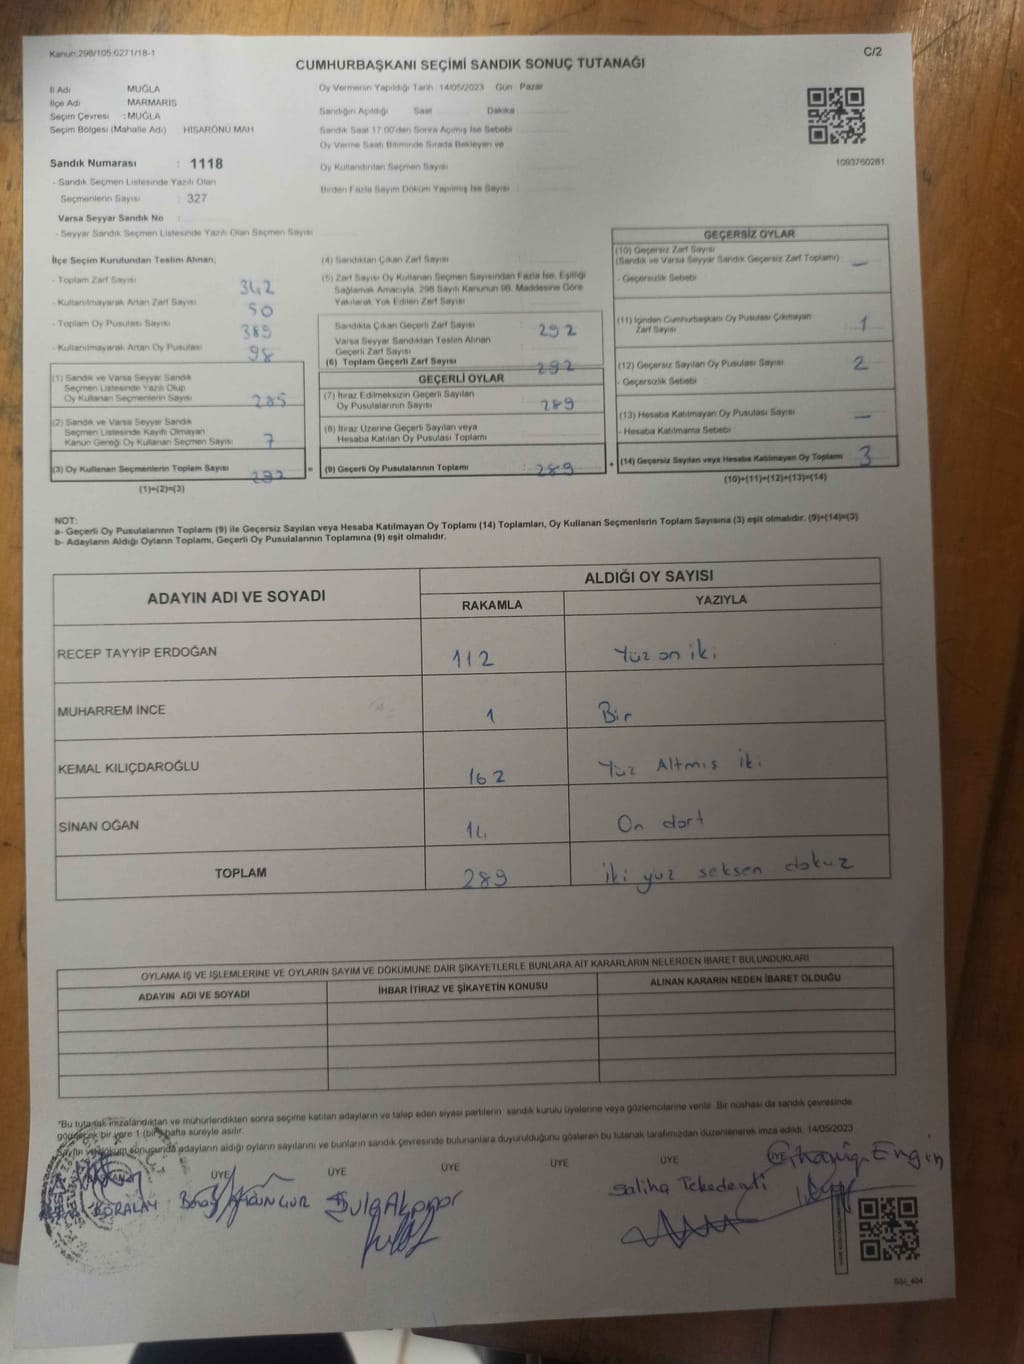 Kanun:298/105;6271/18-1
C/2
CUMHURBAŞKANI SEÇİMİ SANDIK SONUÇ TUTANAĞI
İl Adı MUĞLA
İlçe Adı MARMARİS
Seçim Çevresi :MUĞLA
Seçim Bölgesi (Mahalle Adı) HİSARÖNÜ MAH
Sandık Numarası : 1118
- Sandık Seçmen Listesinde Yazılı Olan
Seçmenlerin Sayısı : 327
Varsa Seyyar Sandık No :
- Seyyar Sandık Seçmen Listesinde Yazılı Olan Seçmen Sayısı
Oy Vermenin Yapıldığı Tarih 14/05/2023 Gün Pazar
Sandığın Açıldığı Saat Dakika
Sandık Saat 17:00'den Sonra Açımış İse Sebebi
Oy Verme Saati Bitiminde Sırada Bekleyen ve
Oy Kullandırılan Seçmen Sayısı
Birden Fazla Sayım Döküm Yapılmış İse Sayısı
1093760281
İlçe Seçim Kurulundan Teslim Alınan;
- Toplam Zarf Sayısı 342
- Kullanılmayarak Artan Zarf Sayısı 50
- Toplam Oy Pusulası Sayısı 389
- Kullanılmayarak Artan Oy Pusulası 98
(1) Sandık ve Varsa Seyyar Sandık
Seçmen Listesinde Yazılı Olup
Oy Kullanan Seçmenlerin Sayısı 285
(2) Sandık ve Varsa Seyyar Sandık
Seçmen Listesinde Kayıtlı Olmayan
Kanun Gereği Oy Kullanan Seçmen Sayısı 7
(3) Oy Kullanan Seçmenlerin Toplam Sayısı 292
(1)+(2)=(3)
(4) Sandıktan Çıkan Zarf Sayısı
(5) Zarf Sayısı Oy Kullanan Seçmen Sayısından Fazla İse, Eşitliği
Sağlamak Amacıyla, 298 Sayılı Kanunun 98. Maddesine Göre
Yakılarak Yok Edilen Zarf Sayısı
Sandıkta Çıkan Geçerli Zarf Sayısı 292
Varsa Seyyar Sandıktan Teslim Alınan
Geçerli Zarf Sayısı
(6) Toplam Geçerli Zarf Sayısı 292
GEÇERLİ OYLAR
(7) İtiraz Edilmeksizin Geçerli Sayılan
Oy Pusulalarının Sayısı 289
(8) İtiraz Üzerine Geçerli Sayılan veya
Hesaba Katılan Oy Pusulası Toplamı
= (9) Geçerli Oy Pusulalarının Toplamı : 289 +
GEÇERSİZ OYLAR
(10) Geçersiz Zarf Sayısı
(Sandık ve Varsa Seyyar Sandık Geçersiz Zarf Toplamı) —
- Geçersizlik Sebebi
(11) İçinden Cumhurbaşkanı Oy Pusulası Çıkmayan
Zarf Sayısı 1
(12) Geçersiz Sayılan Oy Pusulası Sayısı 2
- Geçersizlik Sebebi
(13) Hesaba Katılmayan Oy Pusulası Sayısı —
- Hesaba Katılmama Sebebi
(14) Geçersiz Sayılan veya Hesaba Katılmayan Oy Toplamı 3
(10)+(11)+(12)+(13)=(14)
NOT:
a- Geçerli Oy Pusulalarının Toplamı (9) ile Geçersiz Sayılan veya Hesaba Katılmayan Oy Toplamı (14) Toplamları, Oy Kullanan Seçmenlerin Toplam Sayısına (3) eşit olmalıdır. (9)+(14)=(3)
b- Adayların Aldığı Oyların Toplamı, Geçerli Oy Pusulalarının Toplamına (9) eşit olmalıdır.
ADAYIN ADI VE SOYADI ALDIĞI OY SAYISI
RAKAMLA YAZIYLA
RECEP TAYYİP ERDOĞAN 112 Yüz on iki
MUHARREM İNCE 1 Bir
KEMAL KILIÇDAROĞLU 162 Yüz Altmış iki
SİNAN OĞAN 14 On dört
TOPLAM 289 iki yüz seksen dokuz
OYLAMA İŞ VE İŞLEMLERİNE VE OYLARIN SAYIM VE DÖKÜMÜNE DAİR ŞİKAYETLERLE BUNLARA AİT KARARLARIN NELERDEN İBARET BULUNDUKLARI
ADAYIN ADI VE SOYADI İHBAR İTİRAZ VE ŞİKAYETİN KONUSU ALINAN KARARIN NEDEN İBARET OLDUĞU
*Bu tutanak imzalandıktan ve mühürlendikten sonra seçime katılan adayların ve talep eden siyasi partilerin sandık kurulu üyelerine veya gözlemcilerine verilir. Bir nüshası da sandık çevresinde
bir yere 1 (bir) hafta süreyle asılır.
Sayım ve döküm sonuçunda adayların aldığı oyların sayılarını ve bunların sandık çevresinde bulunanlara duyurulduğunu gösteren bu tutanak tarafımızdan düzenlenerek imza edildi. 14/05/2023
ÜYE ÜYE ÜYE ÜYE ÜYE ÜYE
KORALAY
Saliha Tekedereli
Engin